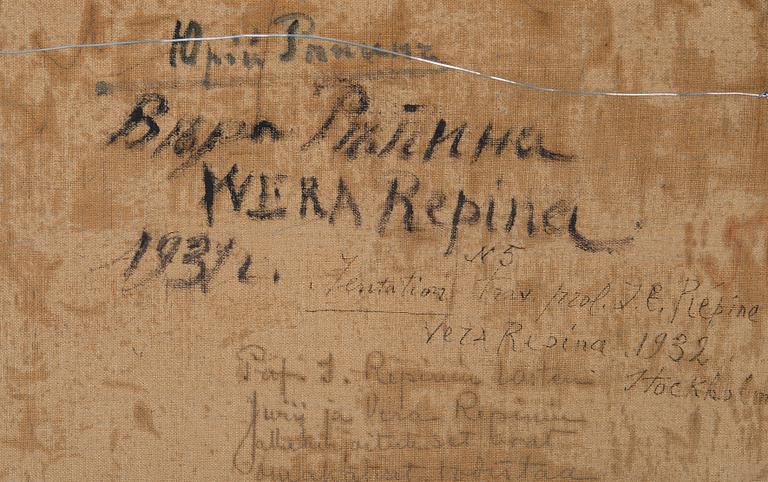 Юрій Рѣпинъ
Вѣра Рѣпина
WERA Repina
1931 г.
N 5
Tentation prof. I. E. Répine
Vera Repina 1932
Stockholm
Prof. I. Repinin lasten
Jurij ja Vera Repinin
ovat